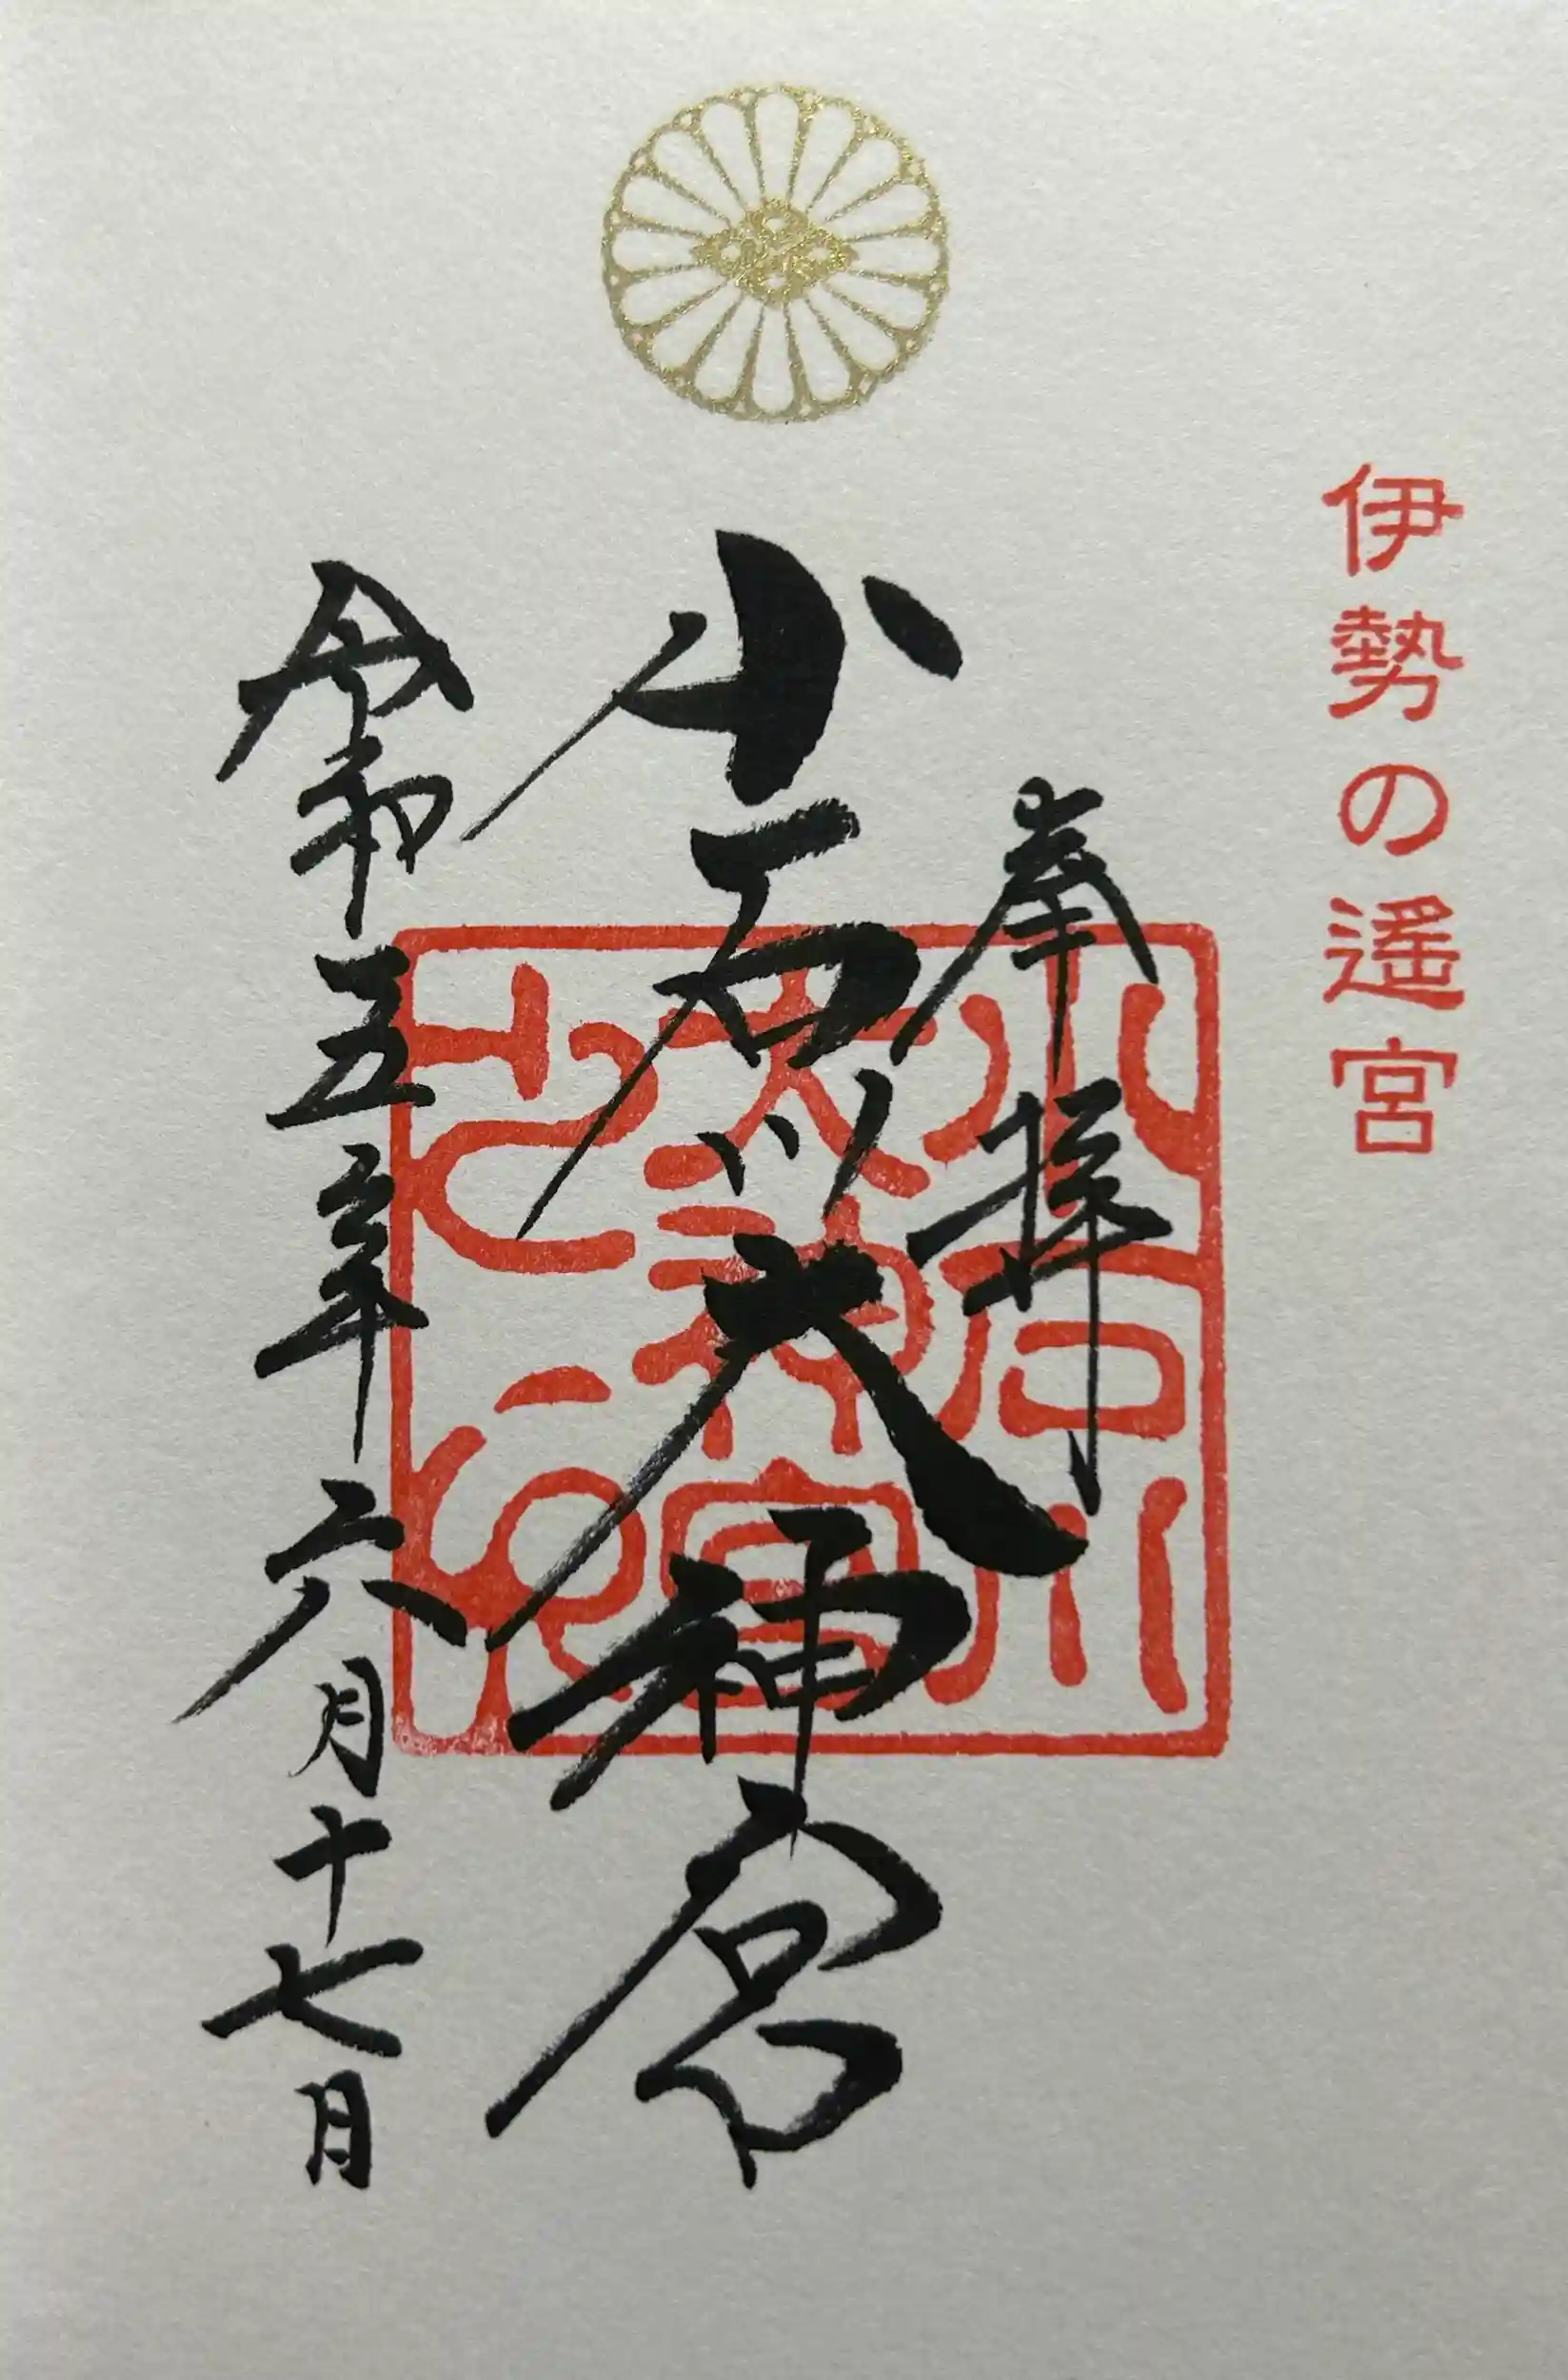 伊勢の遥宮
奉拝
小石川大神宮
令和五年六月十七日
小石川
大神宮
之印